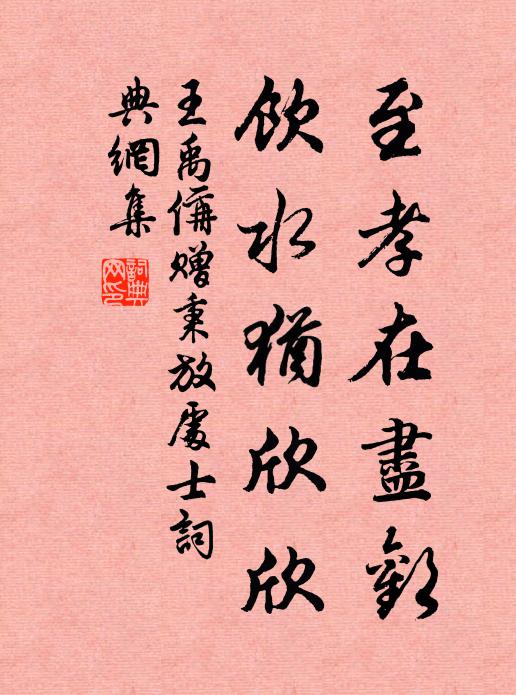 至孝在盡歡
飲水猶欣欣
王禹偁贈秉放處士詞
典網集
詞典
网印